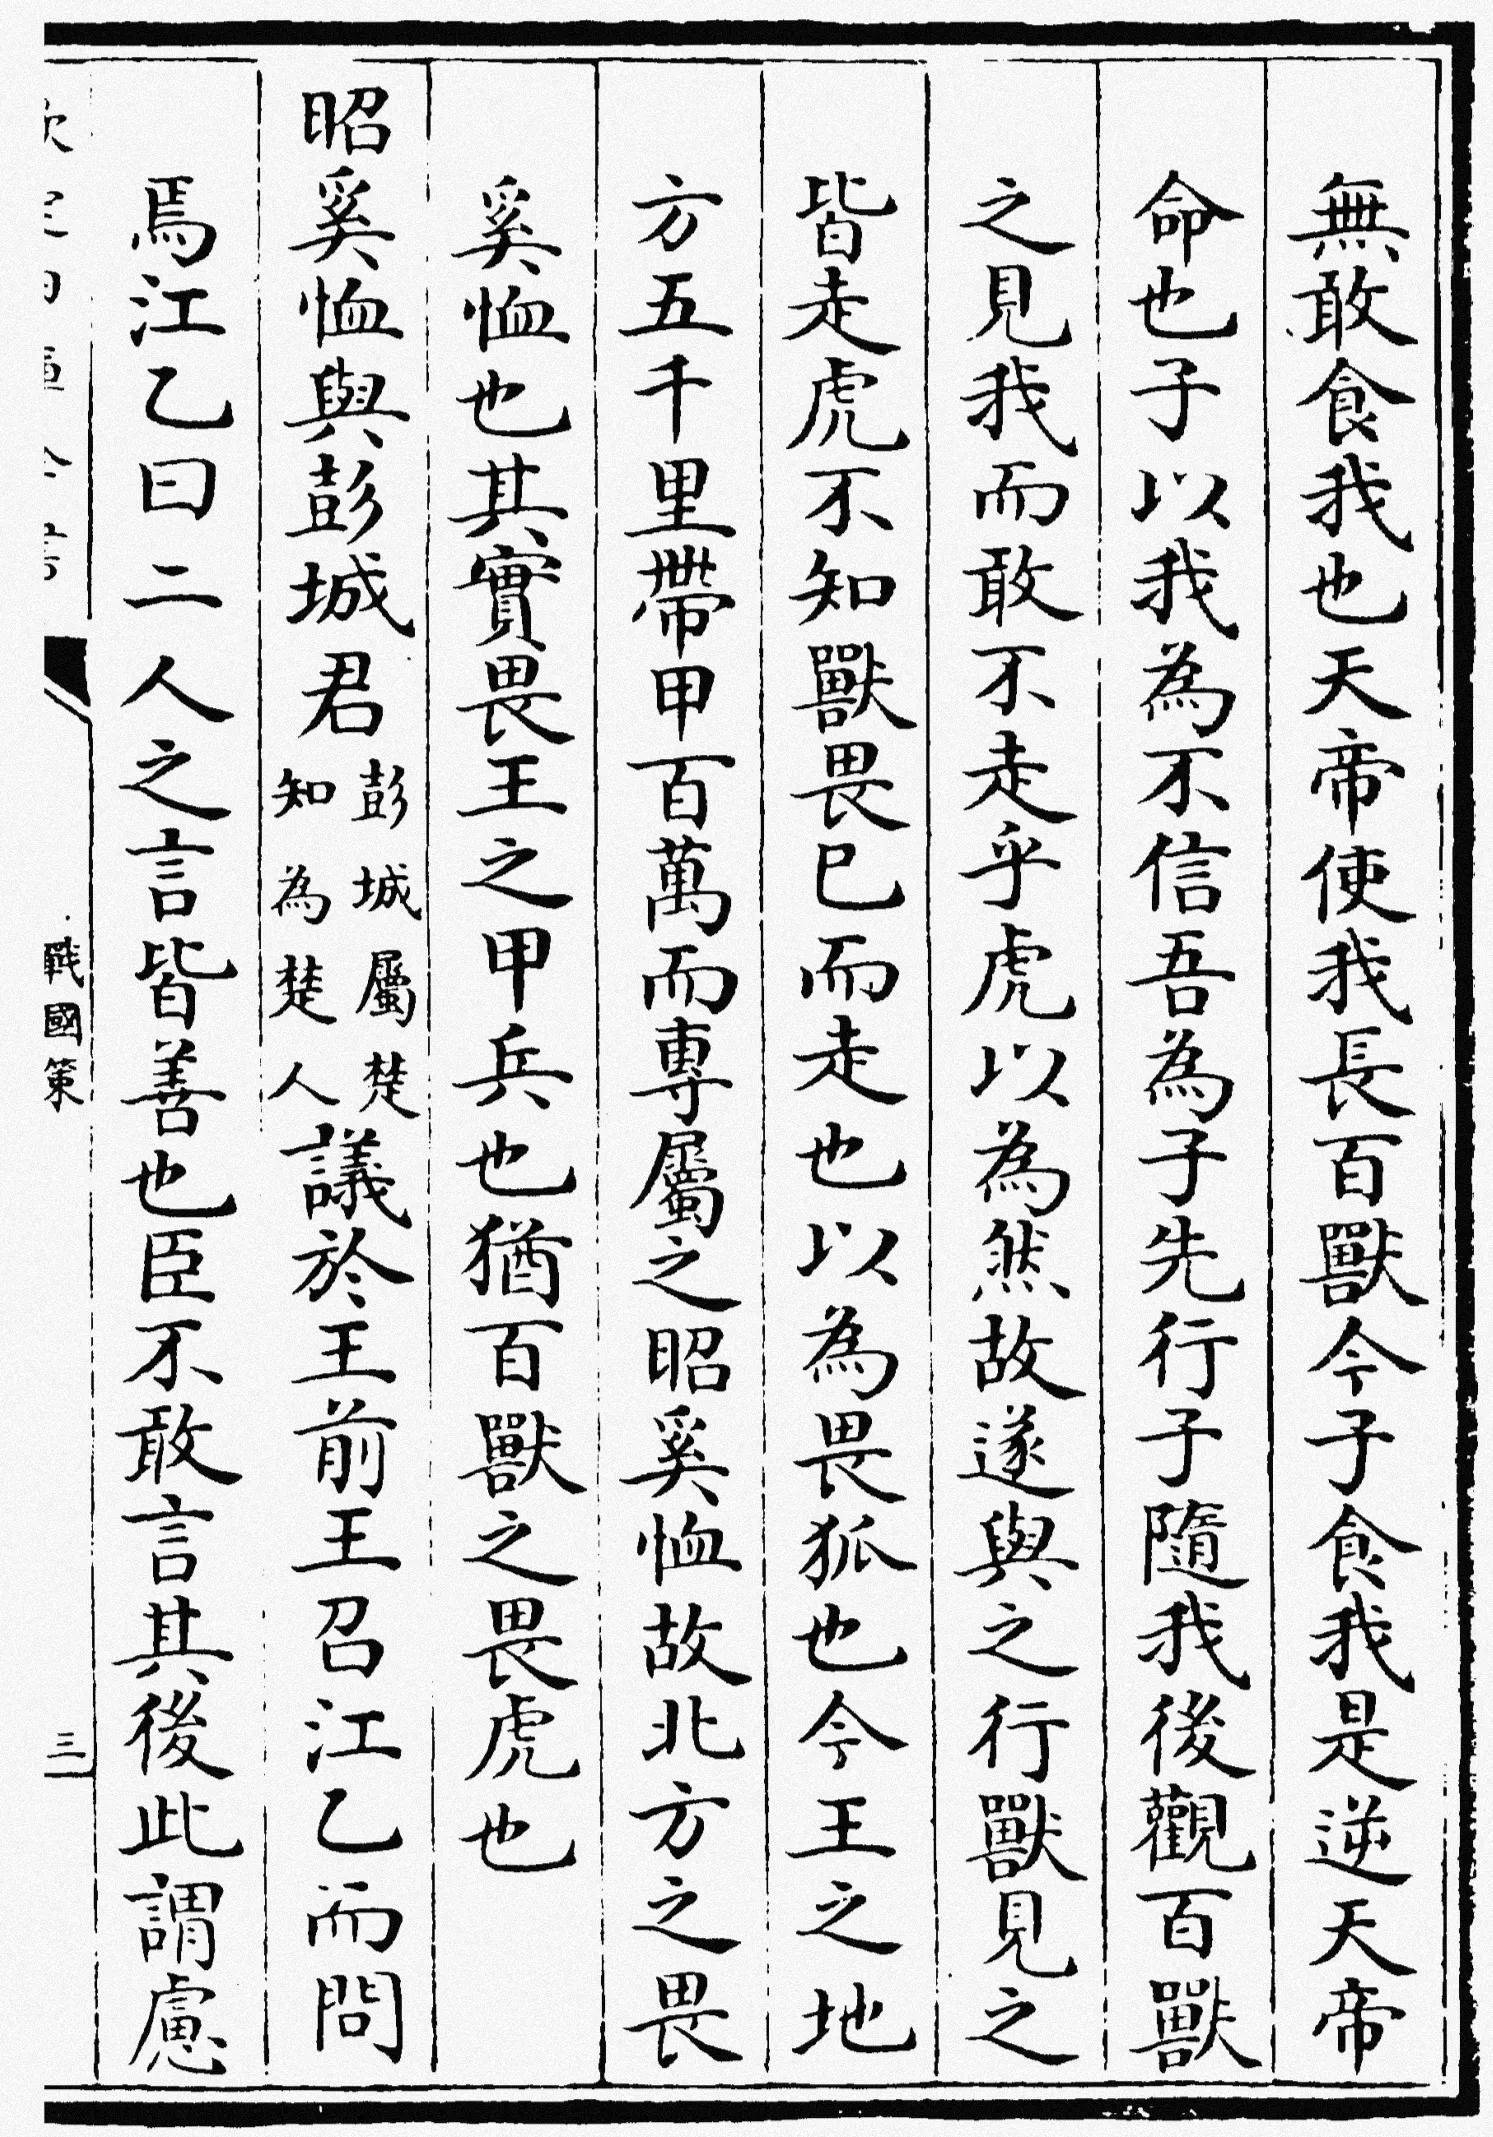 無敢食我也天帝使我長百獸今子食我是逆天帝
命也子以我為不信吾為子先行子隨我後觀百獸
之見我而敢不走乎虎以為然故遂與之行獸見之
皆走虎不知獸畏已而走也以為畏狐也今王之地
方五千里帶甲百萬而專屬之昭奚恤故北方之畏
奚恤也其實畏王之甲兵也猶百獸之畏虎也
昭奚恤與彭城君彭城屬楚知為楚人議於王前王召江乙而問
焉江乙曰二人之言皆善也臣不敢言其後此謂慮
戰國策
三